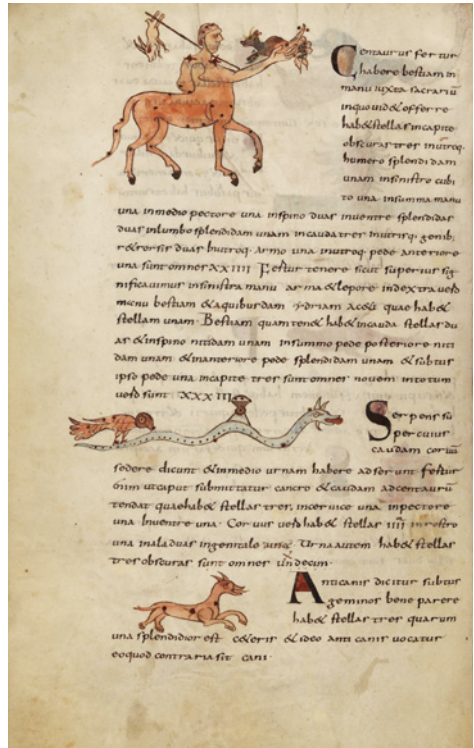 Centaurus fertur
habere bestiam in
manu iuxta sacrariū
inquo uidet offerre
habet stellas incapite
obscuras tres inutroq.
humero splendidam
unam insinistro cubi
to una insumma manu
una inmedio pectore una inspino duas inuentre splendidas
duas inlumbo splendidam unam incauda tres inutrisq. genib;
retrorsis duas Inutroq. Armo una inutroq. pede anteriore
una sunt omnes XXIIII Fertur tenere sicut superius sig
nificauimus insinistra manu arma et lepore indextra uero
manu bestiam et aquibusdam ydriam quae habet
stellam unam Bestiam quam tenet habet incauda stellas du
as et inspino nitidam unam insummo pede posteriore niti
dam unam et inanteriore pede splendidam unam et subtus
ipso pede una incapite tres sunt omnes nouem intotum
uero sunt XXXIII
Serpens su
per cuius
caudam coruū
sedere dicunt et inmedio urnam habere adserunt fertur
enim utcaput submittatur cancro et caudam adcentaurū
tendat quae habet stellas tres, inceruice una inpectore
una Inuentre una Coruus uero habet stellas IIII inrostro
una inala duas ingenitale una Urna autem habet stellas
tres obscuras sunt omnes undecim
Anticanis dicitur subtus
geminos bene parere
habet stellas tres quarum
una splendidior est ceteris et ideo anti canis uocatur
eo quod contraria sit cani